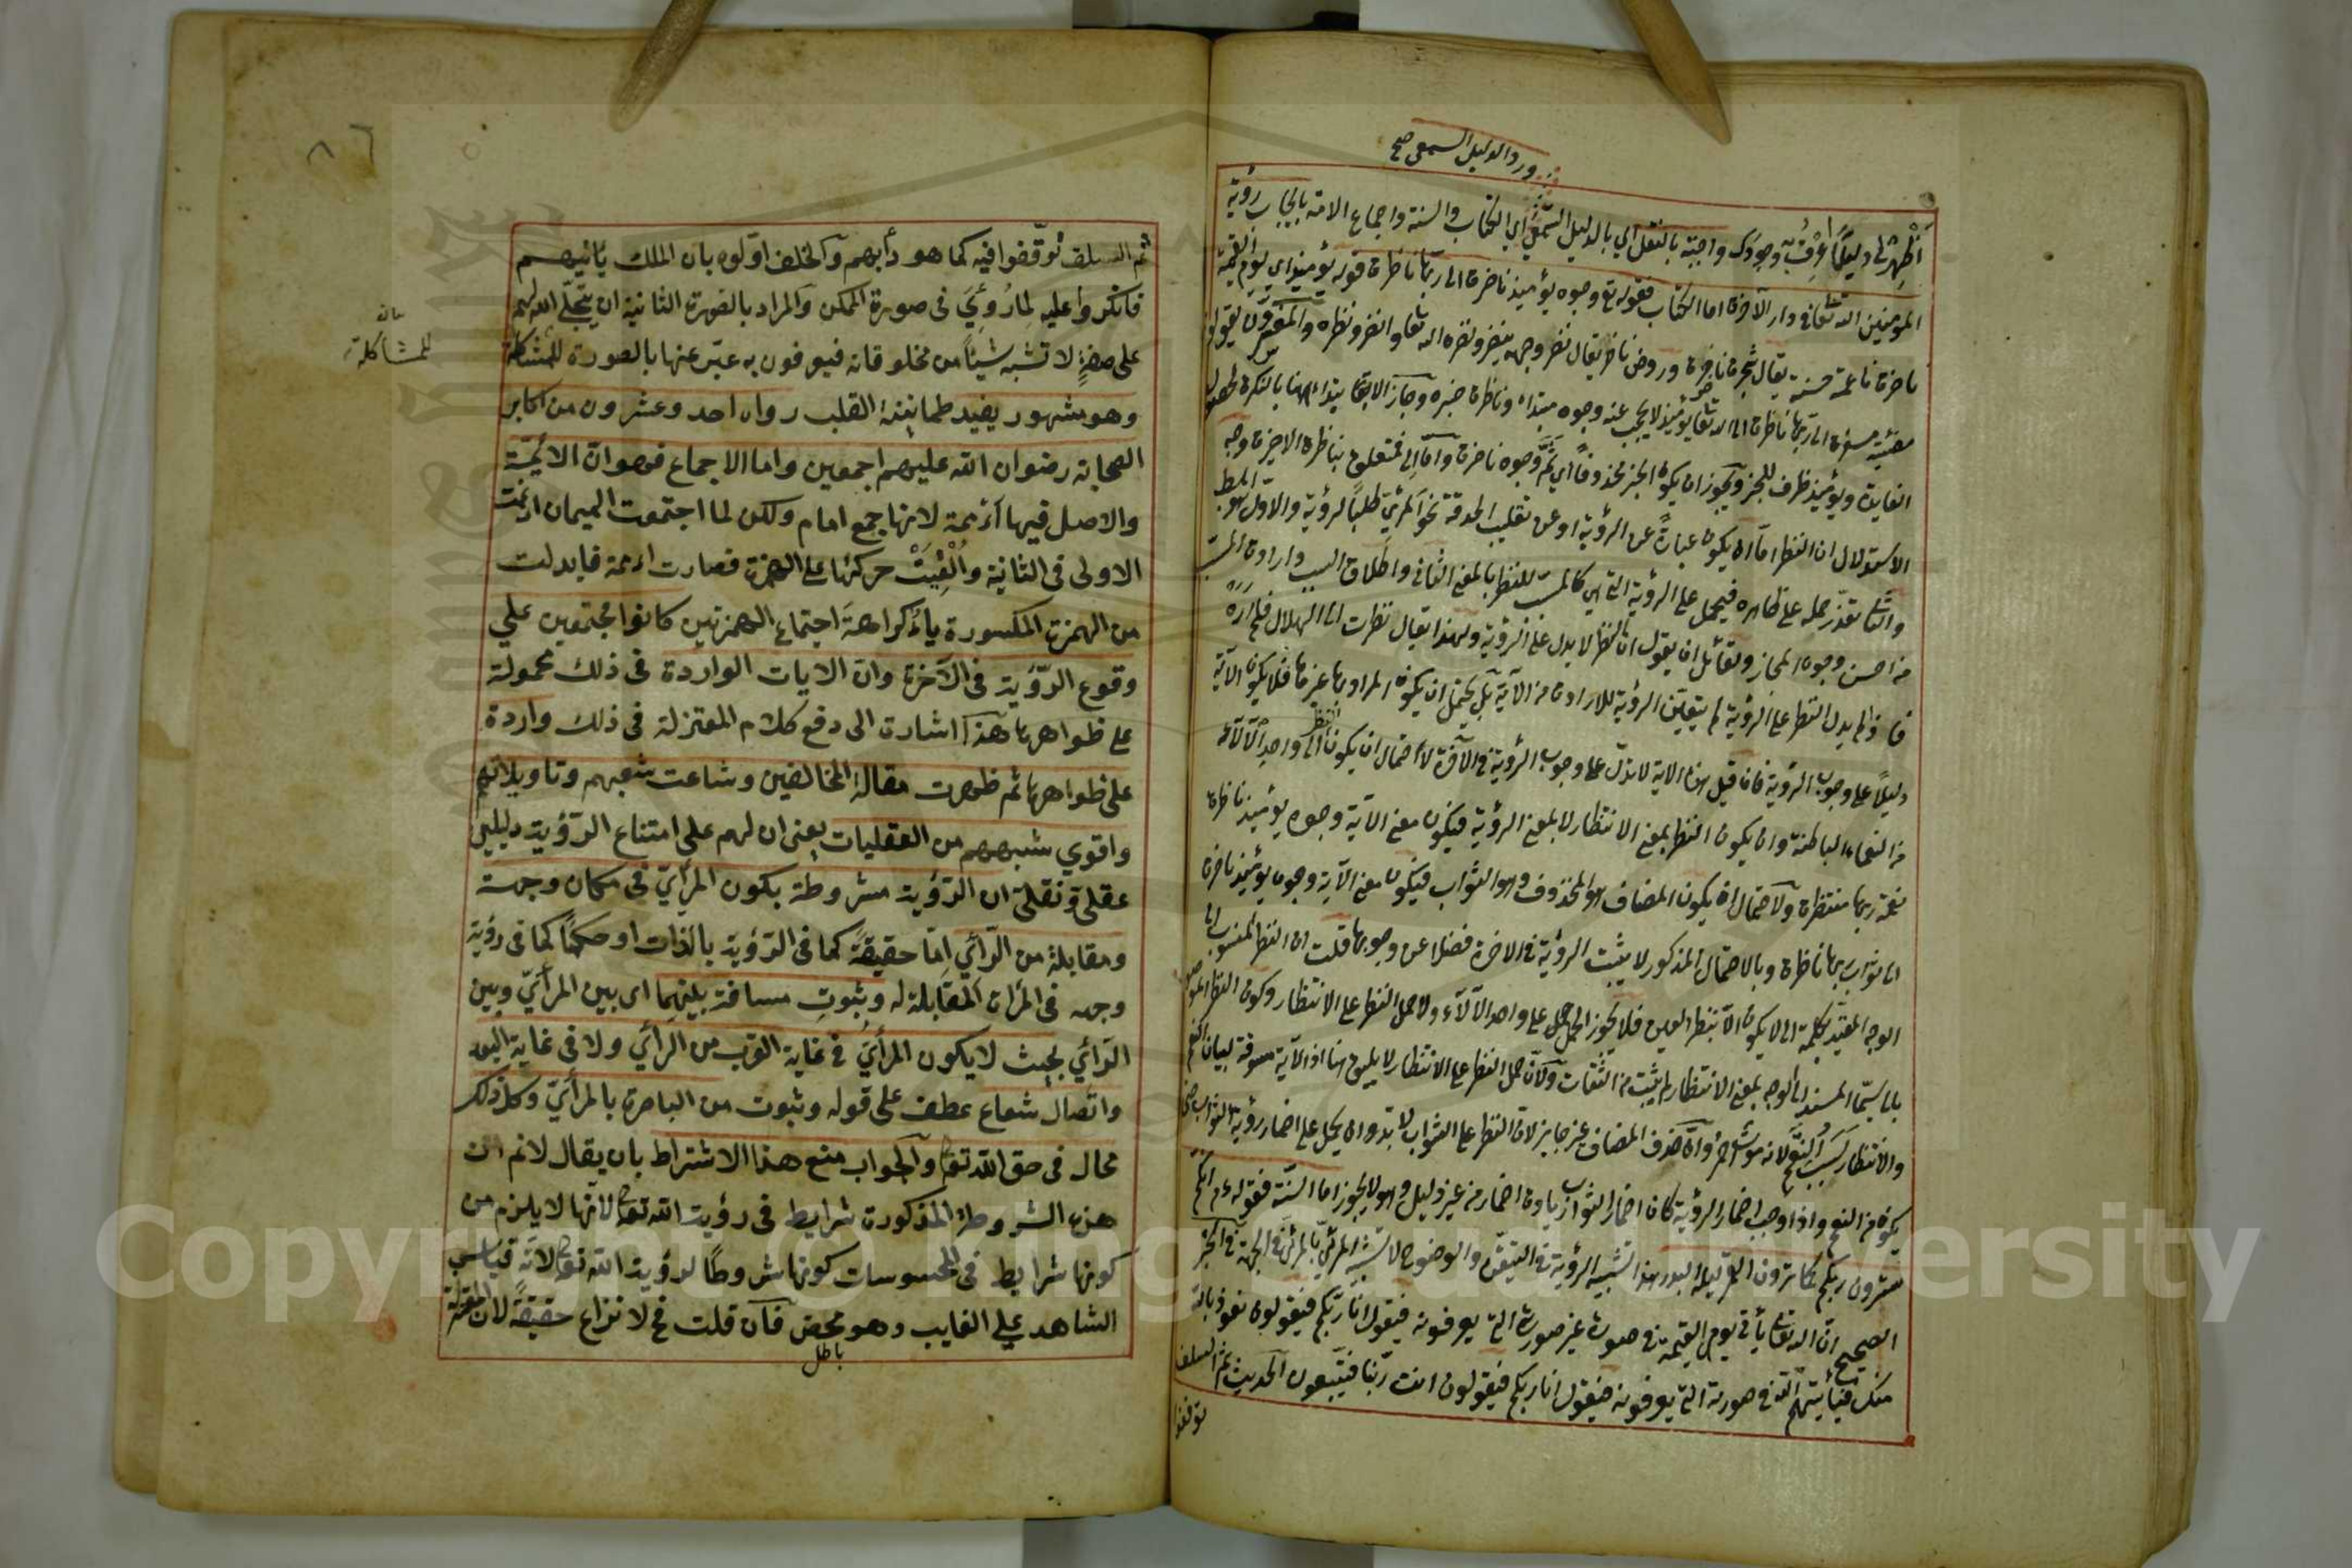 ورد الدليل السمعي صح
أظهر لي دليلا عرفت به وجودك واجبة بالنقل اي بالدليل السمعي اي الكتاب والسنة واجماع الامة بايجاب رؤية
المؤمنين الله تعالى في دار الآخرة اما الكتاب فقوله تع وجوه يومئذ ناضرة الى ربها ناظرة قوله يومئذ اي يوم القيمة
ناضرة ناعمة حسنة يقال شجرة ناضرة وروض ناضر يقال نضر وجهه ينضر ونضره الله تعا وانضر ونظره والمفسرون يقولون
مضيئة مسفرة الى ربها ناظرة الى الله تعا يومئذ لا يحجب عنه وجوه مبتداء وناظرة خبره وجاز الابتداء ههنا بالنكرة لحصول
الفايدة ويومئذ ظرف للخبر ويجوز ان يكون الخبر محذوفا اي ثم وجوه ناضرة واما الى فمتعلق بناظرة الاخيرة وجه
الاستدلال ان النظر اما ان يكون عبارة عن الرؤية او عن تقليب الحدقة نحو المرئي طلبا لرؤية والاول هو المط
والثاني تعذر حمله على ظاهره فيحمل على الرؤية التي هي كالمسبب للنظر بالمعنى الثاني واطلاق السبب وارادة المسبب
من احسن وجوه المجاز ولقائل ان يقول ان النظر لا يدل على الرؤية ولهذا يقال نظرت الى الهلال فلم اره
فاذا لم يدل النظر على الرؤية لم يتعين الرؤية للارادة من الآية بل يحتمل ان يكون المراد بها غيرها فلا يكون الآية
دليلا على وجوب الرؤية فان قيل هذه الاية لا تدل على وجوب الرؤية في الآخرة لاحتمال ان يكون الى واحد الآلاء
من النعماء الباطنة وان يكون النظر بمعنى الانتظار لا بمعنى الرؤية فيكون معنى الآية وجوه يومئذ ناظرة
نعمة ربها منتظرة ولاحتمال ان يكون المضاف هو المحذوف وهو الثواب فيكون معنى الآية وجوه يومئذ ناضرة
الى ثواب ربها ناظرة وبالاحتمال المذكور لا يثبت الرؤية في الاخرة فضلا عن وجوبها قلت ان النظر المنسوب الى
الوجه المقيد بكلمة الى لا يكون الا بنظر العين فلا يجوز الحمل على واحد الآلاء ولا حمل النظر على الانتظار وكون النظر الموصول
بالى سيما المسند الى الوجه بمعنى الانتظار لم يثبت من الثقات ولان حمل النظر على الانتظار لا يليق هنا اذ الآية مسوقة لبيان النعم
والانتظار لانه موت احمر وان حذف المضاف غير جايز لان النظر على الثواب لا بد وان يحمل على اضمار رؤية الثواب حتى
يكون من النعم واذا وجب اضمار الرؤية كان اضمار الثواب زيادة اضمار من غير دليل وهو لا يجوز اما السنة فقوله ءم انكم
سترون ربكم كما ترون القمر ليلة البدر هذا تشبيه الرؤية في التيقن والوضوح لا تشبيه المرئي بالمرئي في الجهة في الخبر
الصحيح ان الله تعالى يأتي يوم القيمة في صورة غير صورة التي يعرفونه فيقول انا ربكم فيقولون نعوذ بالله
منك فيأتيهم الله في صورته التي يعرفونه فيقول انا ربكم فيقولون انت ربنا فيتبعون الحديث ثم السلف
توقفوا
٨٦
ثم السلف توقفوا فيه كما هو دأبهم والخلف اوّلوه بان الملك يأتيهم
فانكروا عليه لما رؤي في صورة الممكن والمراد بالصورة الثانية ان يتجلى الله لهم
على صفة لا تشبه شيئا من مخلوقاته فيعرفون به عبر عنها بالصورة للمشاكلة
للمشاكلة
وهو مشهور يفيد طمانينة القلب رواه احد وعشرون من اكابر
الصحابة رضوان الله عليهم اجمعين واما الاجماع فهو ان الائمة
والاصل فيها أئممة لانها جمع امام ولكن لما اجتمعت الميمان ادغمت
الاولى في الثانية وألقيت حركتها على الهمزة فصارت اءمة فابدلت
من الهمزة المكسورة ياء كراهة اجتماع الهمزتين كانوا مجتمعين على
وقوع الرؤية في الآخرة وان الايات الواردة في ذلك محمولة
على ظواهرها هذا اشارة الى دفع كلام المعتزلة في ذلك واردة
على ظواهرها ثم ظهرت مقالة المخالفين وشاعت شبههم وتاويلاتهم
واقوي شبههم من العقليات يعنى ان لهم على امتناع الرؤية دليلين
عقلي ونقلي ان الرؤية مشروطة بكون المرأي في مكان وجهة
ومقابلة من الرّأئي امّا حقيقةً كما في الرؤية بالذات او حكمًا كما في رؤية
وجهه في المرآة المقابلة له وبثبوت مسافة بينهما اى بين المرأي وبين
الرائي بحيث لا يكون المرأي في غاية القرب من الرأئي ولا في غاية البعد
واتصال شعاع عطف على قوله وثبوت من الباصرة بالمرأي وكل ذلك
محال في حق الله تعالى والجواب منع هذا الاشتراط بان يقال لا نم ان
هذه الشروط المذكورة شرايط في رؤية الله تعالى لانها لا يلزم من
كونها شرايط في المحسوسات كونها شروطا لرؤية الله تعالى لانه قياس
الشاهد على الغايب وهو محض فان قلت فح لا نزاع حقيقة لان المعتزلة
باطل
Copyright © King Saud University